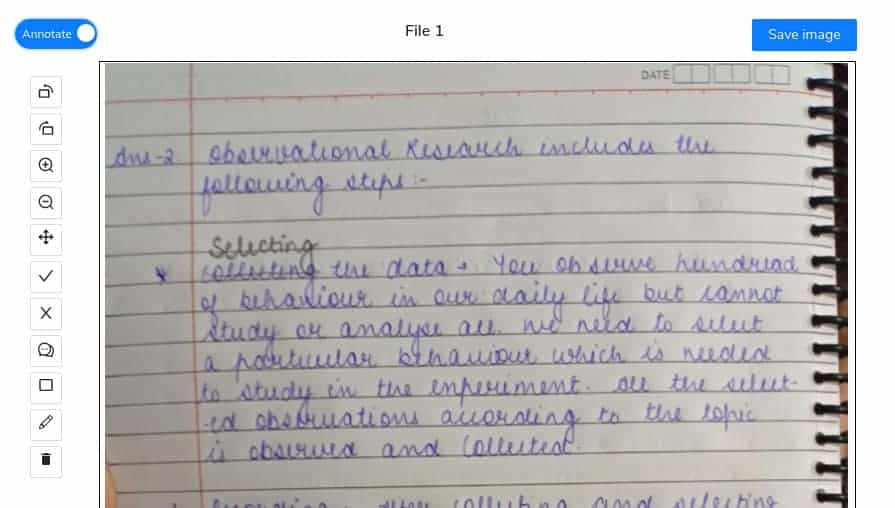 Annotate
File 1
Save image
DATE
Ans-2 Observational Research includes the
following steps :-
Selecting
* collecting the data → You observe hundread
of behaviour in our daily life but cannot
study or analyse all. We need to select
a particular behaviour which is needed
to study in the experiment. All the select-
-ed observations according to the topic
is observed and collected.
collecting and selecting